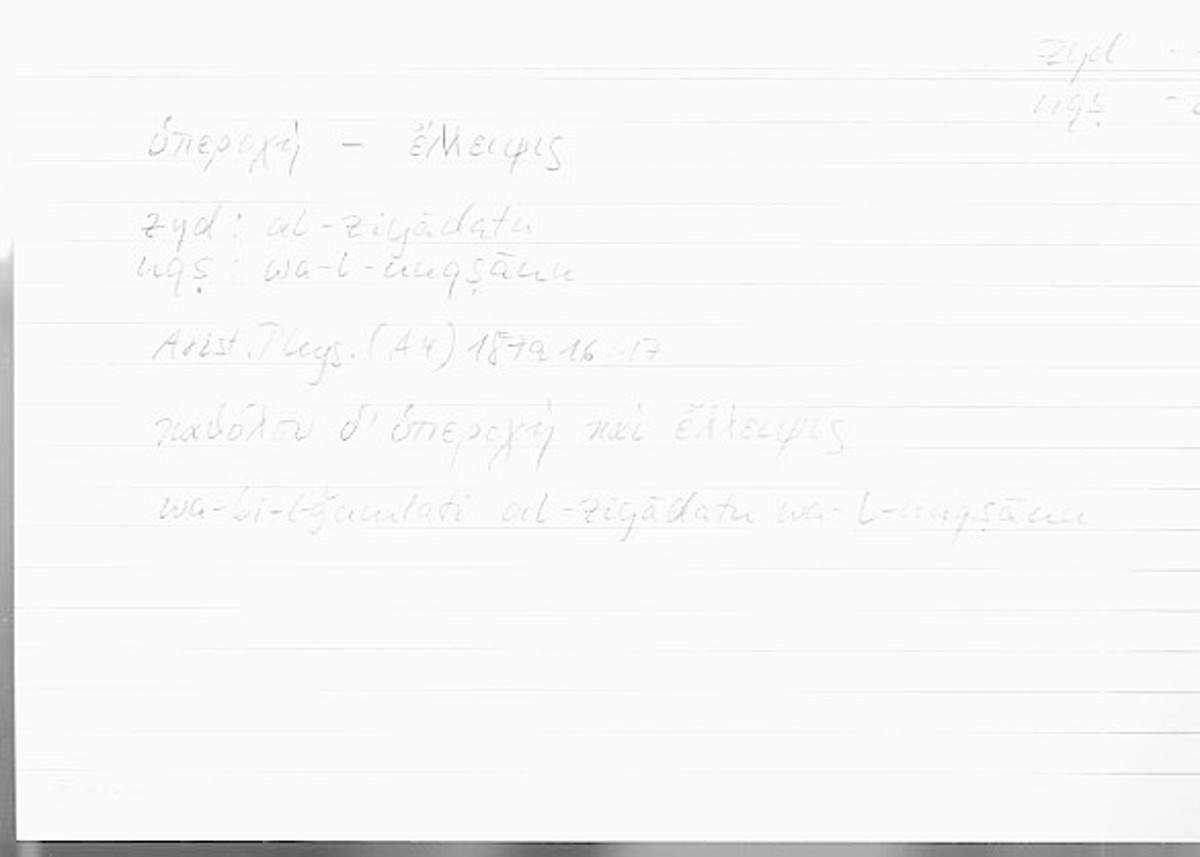 zyd
nqṣ
ὑπεροχή – ἔλλειψις
zyd : al-ziyādatu
nqṣ : wa-l-nuqṣānu
Arist. Phys. (A4) 187a 16 17
καθόλου δ' ὑπεροχή καὶ ἔλλειψις
wa-bi-l-ǧumlati al-ziyādatu wa-l-nuqṣānu